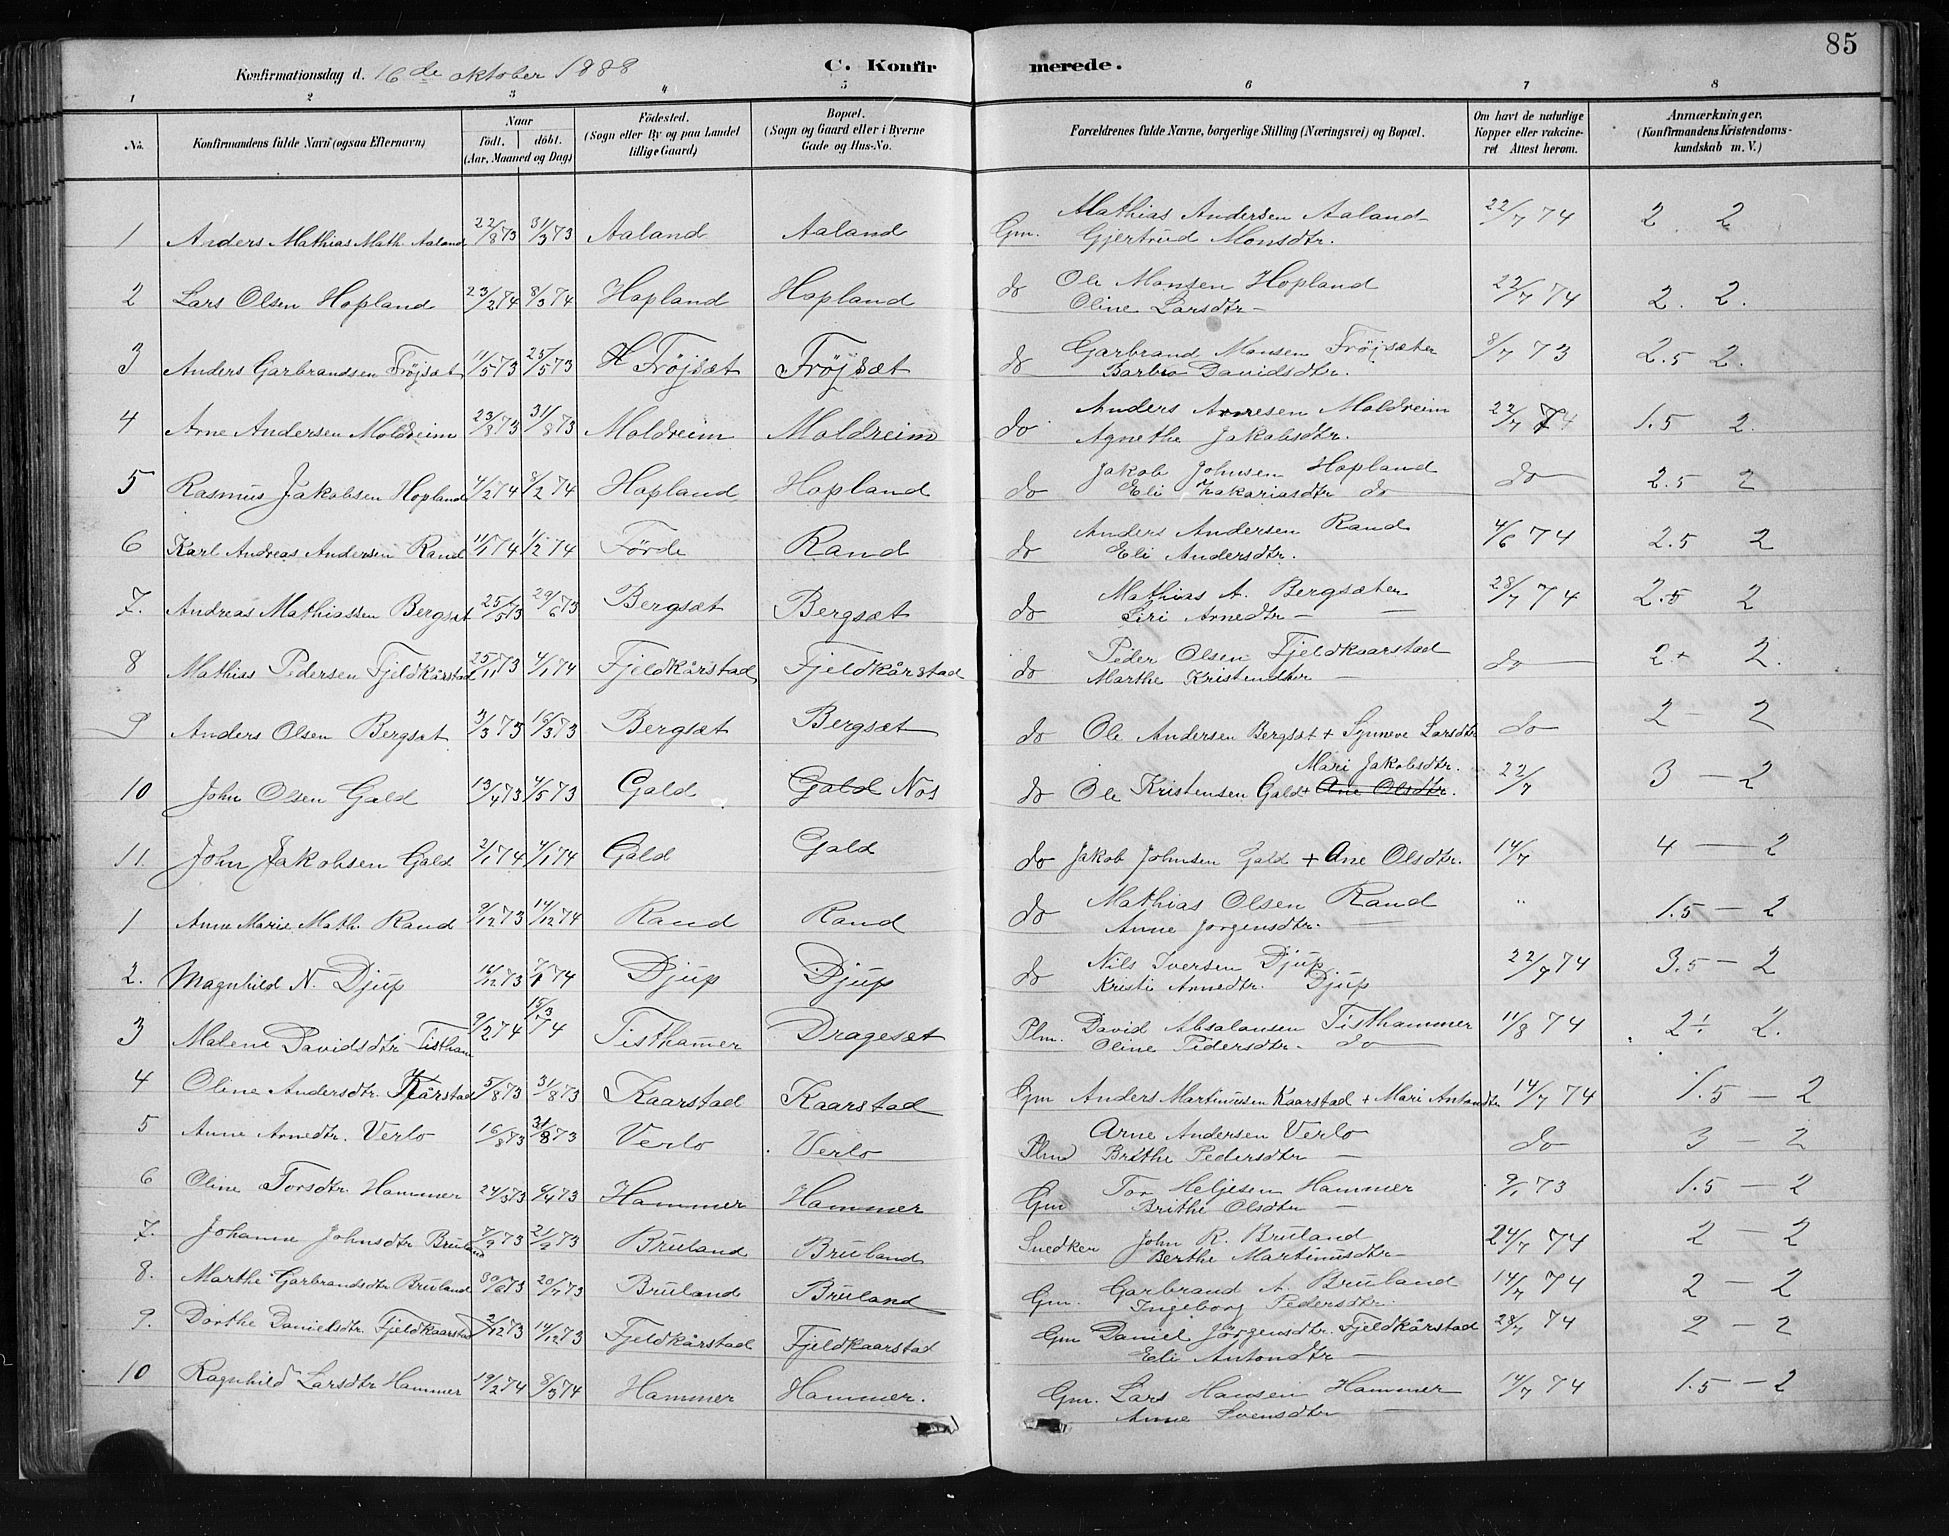 85
Konfirmationsdag d. 16de oktober 1888 C. Konfirmerede.
1 2 3 4 5 6 7 8
No. Konfirmandens fulde Navn (ogsaa Efternavn) Naar födt. döbt. (Aar, Maaned og Dag) Födested. (Sogn eller By og paa Landet tillige Gaard) Bopæl. (Sogn og Gaard eller i Byerne Gade og Hus-No. Forældrenes fulde Navne, borgerlige Stilling (Næringsvei) og Bopæl. Om havt de naturlige Kopper eller vakcineret Attest herom. Anmærkninger. (Konfirmandens Kristendomskundskab m. V.)
1 Anders Mathias Math. Aaland 22/8 73 31/3 73 Aaland Aaland Gm. Mathias Andersen Aaland Gjertrud Monsdtr. 22/7 74 2 2
2 Lars Olsen Hopland 23/2 74 8/3 74 Hopland Hopland do Ole Monsen Hopland Oline Larsdtr 22/7 74 2. 2.
3 Anders Garbrandsen Fröjsæt 11/5 73 25/5 73 Fröjsæt Fröjsæt do Garbrand Monsen Fröjsæter Barbro Davidsdtr. 8/7 73 2.5 2.
4 Arne Andersen Moldreim 23/8 73 31/8 73 Moldreim Moldreim do Anders Arnesen Moldreim Agnethe Jakobsdtr. 22/7 74 1.5 2.
5 Rasmus Jakobsen Hopland 4/2 74 8/2 74 Hopland Hopland do Jakob Johnsen Hopland Eli Zakariasdtr do do 2.5 2
6 Karl Andreas Andersen Rand 11/1 74 1/2 74 Förde Rand do Anders Andersen Rand Eli Andersdtr. 4/6 74 2.5 2
7. Andreas Mathiassen Bergsæt 25/5 73 29/6 73 Bergsæt Bergsæt do Mathias A. Bergsæter Siri Arnedtr 28/7 74 2.5 2
8 Mathias Pedersen Fjeldkårstad 25/11 73 4/1 74 Fjeldkårstad Fjeldkårstad do Peder Olsen Fjeldkaarstad Marthe Kristendtr do 2+ 2.
9 Anders Olsen Bergsæt 3/3 73 16/3 73 Bergsæt Bergsæt do Ole Andersen Bergsæt + Synneve Larsdtr do 2 — 2
10 John Olsen Gald 13/4 73 4/5 73 Gald Gald Nos do Ole Kristensen Gald + Ane Olsdtr. Mari Jakobsdtr. 22/7 3 — 2
11. John Jakobsen Gald 2/1 74 4/1 74 Gald Gald do Jakob Johnsen Gald + Ane Olsdtr. 14/7 4 — 2
1 Anne Marie Math. Rand 9/12 73 14/12 74 Rand Rand do Mathias Olsen Rand Anne Jorgensdtr. " 1.5 — 2
2. Magnhild N. Djup 16/12 73 74 Djup Djup do Nils Iversen Djup Kristi Arnedtr. Djup 22/7 74 3.5 — 2
3 Malene Davidsdtr Tistham 9/2 74 15/3 74 Tisthamer Dragesæt Plm. David Absalonsen Tisthammer Oline Pedersdtr. do 11/8 74 2÷ 2.
4 Oline Andersdtr. Kårstad 5/8 73 31/8 73 Kaarstad Kaarstad Gm Anders Martinusen Kaarstad + Mari Antondtr 14/7 74 1.5 — 2
5 Anne Arnedtr. Verlo 16/8 73 31/8 73 Verlo Verlo Plm Arne Andersen Verlo Brithe Pedersdtr do 3 — 2
6 Oline Torsdtr. Hammer 24/3 73 6/4 73 Hammer Hammer Gm Tor Heljesen Hammer Brithe Olsdtr 9/1 73 1.5 — 2
7. Johanne Johnsdtr Bruland 7/9 73 21/9 73 Bruland Bruland Snedker John R. Bruland Berthe Martinusdtr 24/7 74 2 — 2
8. Marthe Garbrandsdtr Bruland 30/6 73 20/7 73 Bruland Bruland Gm. Garbrand A. Bruland Ingeborg Pedersdtr. 14/7 74 2 — 2
9. Dorthe Danielsdtr. Fjeldkaarstad 2/12 73 14/12 73 Fjeldkårstad Fjeldkaarstad Gm Daniel Jörgensdtr. Fjeldkårstad Eli Antondtr 28/7 74 2 — 2
10 Ragnhild Larsdtr Hammer 19/2 74 8/3 74 Hammer Hammer. Gm. Lars Hansen Hammer Anne Svensdtr 14/7 74 1.5 — 2